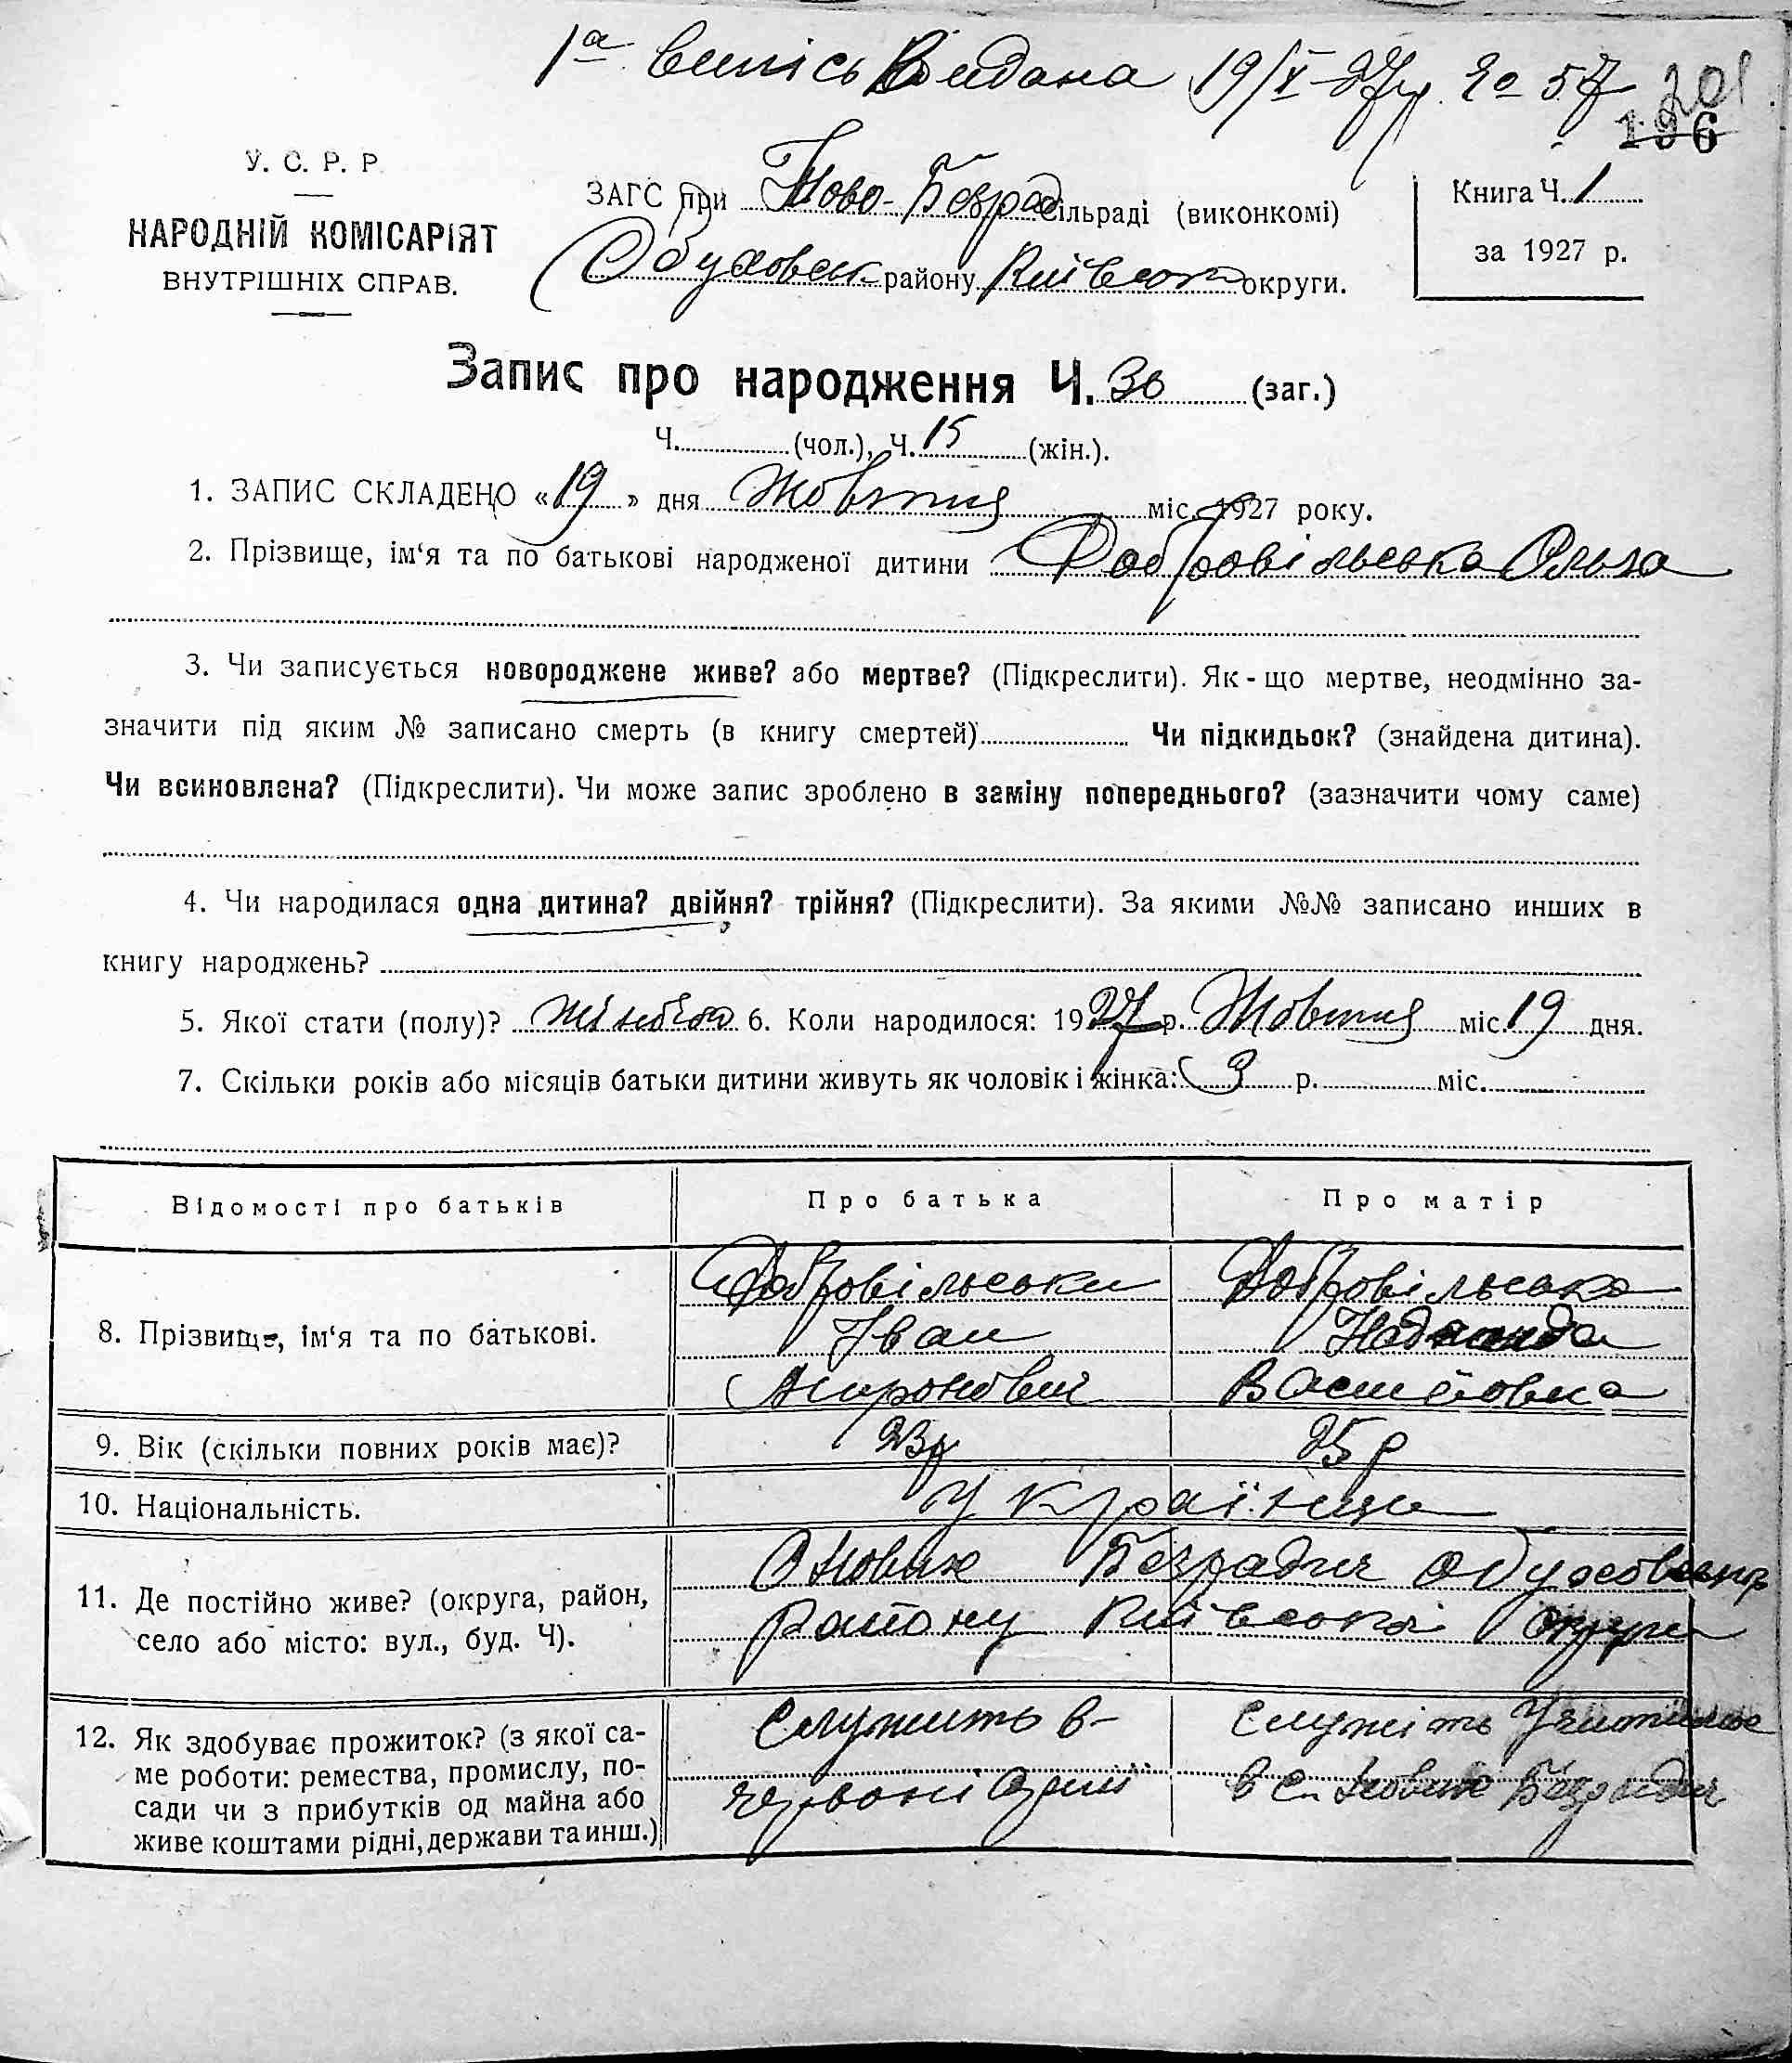 1а випись Видана 19/X-27р. за 57
201
196
У. С. Р. Р.
НАРОДНІЙ КОМІСАРІЯТ
ВНУТРІШНІХ СПРАВ.
ЗАГС при Ново-Безрад сільраді (виконкомі)
Обуховськ району Київськ округи.
Книга Ч. 1
за 1927 р.
Запис про народження Ч. 36 (заг.)
Ч. (чол.), Ч. 15 (жін.).
1. ЗАПИС СКЛАДЕНО «19» дня Жовтня міс. 1927 року.
2. Прізвище, ім‘я та по батькові народженої дитини Добровільська Ольга
3. Чи записується новороджене живе? або мертве? (Підкреслити). Як-що мертве, неодмінно за-
значити під яким № записано смерть (в книгу смертей) Чи підкидьок? (знайдена дитина).
Чи всиновлена? (Підкреслити). Чи може запис зроблено в заміну попереднього? (зазначити чому саме)
4. Чи народилася одна дитина? двійня? трійня? (Підкреслити). За якими №№ записано инших в
книгу народжень?
5. Якої стати (полу)? жіноча 6. Коли народилося: 1927 р. Жовтня міс. 19 дня.
7. Скільки років або місяців батьки дитини живуть як чоловік і жінка: 3 р. міс.
Відомості про батьків Про батька Про матір
8. Прізвище, ім‘я та по батькові.
Добровільськи Добровільська
Іван
Миронович Василовна
9. Вік (скільки повних років має)? 23р 25р
10. Національність. Українци
11. Де постійно живе? (округа, район,
село або місто: вул., буд. Ч).
С Нових Безрадич Обуховського
району Київської округи
12. Як здобуває прожиток? (з якої са-
ме роботи: ремества, промислу, по-
сади чи з прибутків од майна або
живе коштами рідні, держави та инш.)
Служить в-
червоні Армії
Служіть
в с. Нових Безрадич